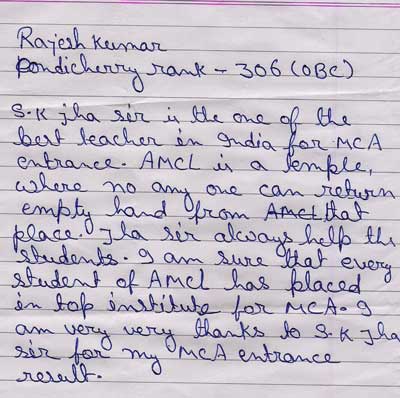 Rajesh Kumar
Pondicherry rank - 306 (OBC)
S.K Jha sir is the one of the
best teacher in India for MCA
entrance. AMCL is a temple,
where no any one can return
empty hand from AMCL that
place. Jha sir always help the
students. I am sure that every
student of AMCL has placed
in top institute for MCA. I
am very very thanks to S.K Jha
sir for my MCA entrance
result.